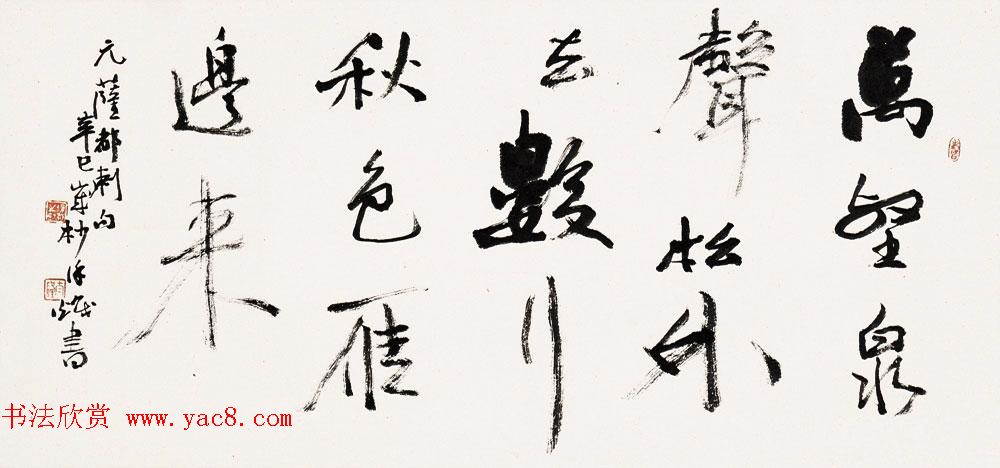 萬壑泉
聲松外
去數行
秋色雁
邊來
元薩都剌句
辛巳歲杪
書
书法欣赏 www.yac8.com